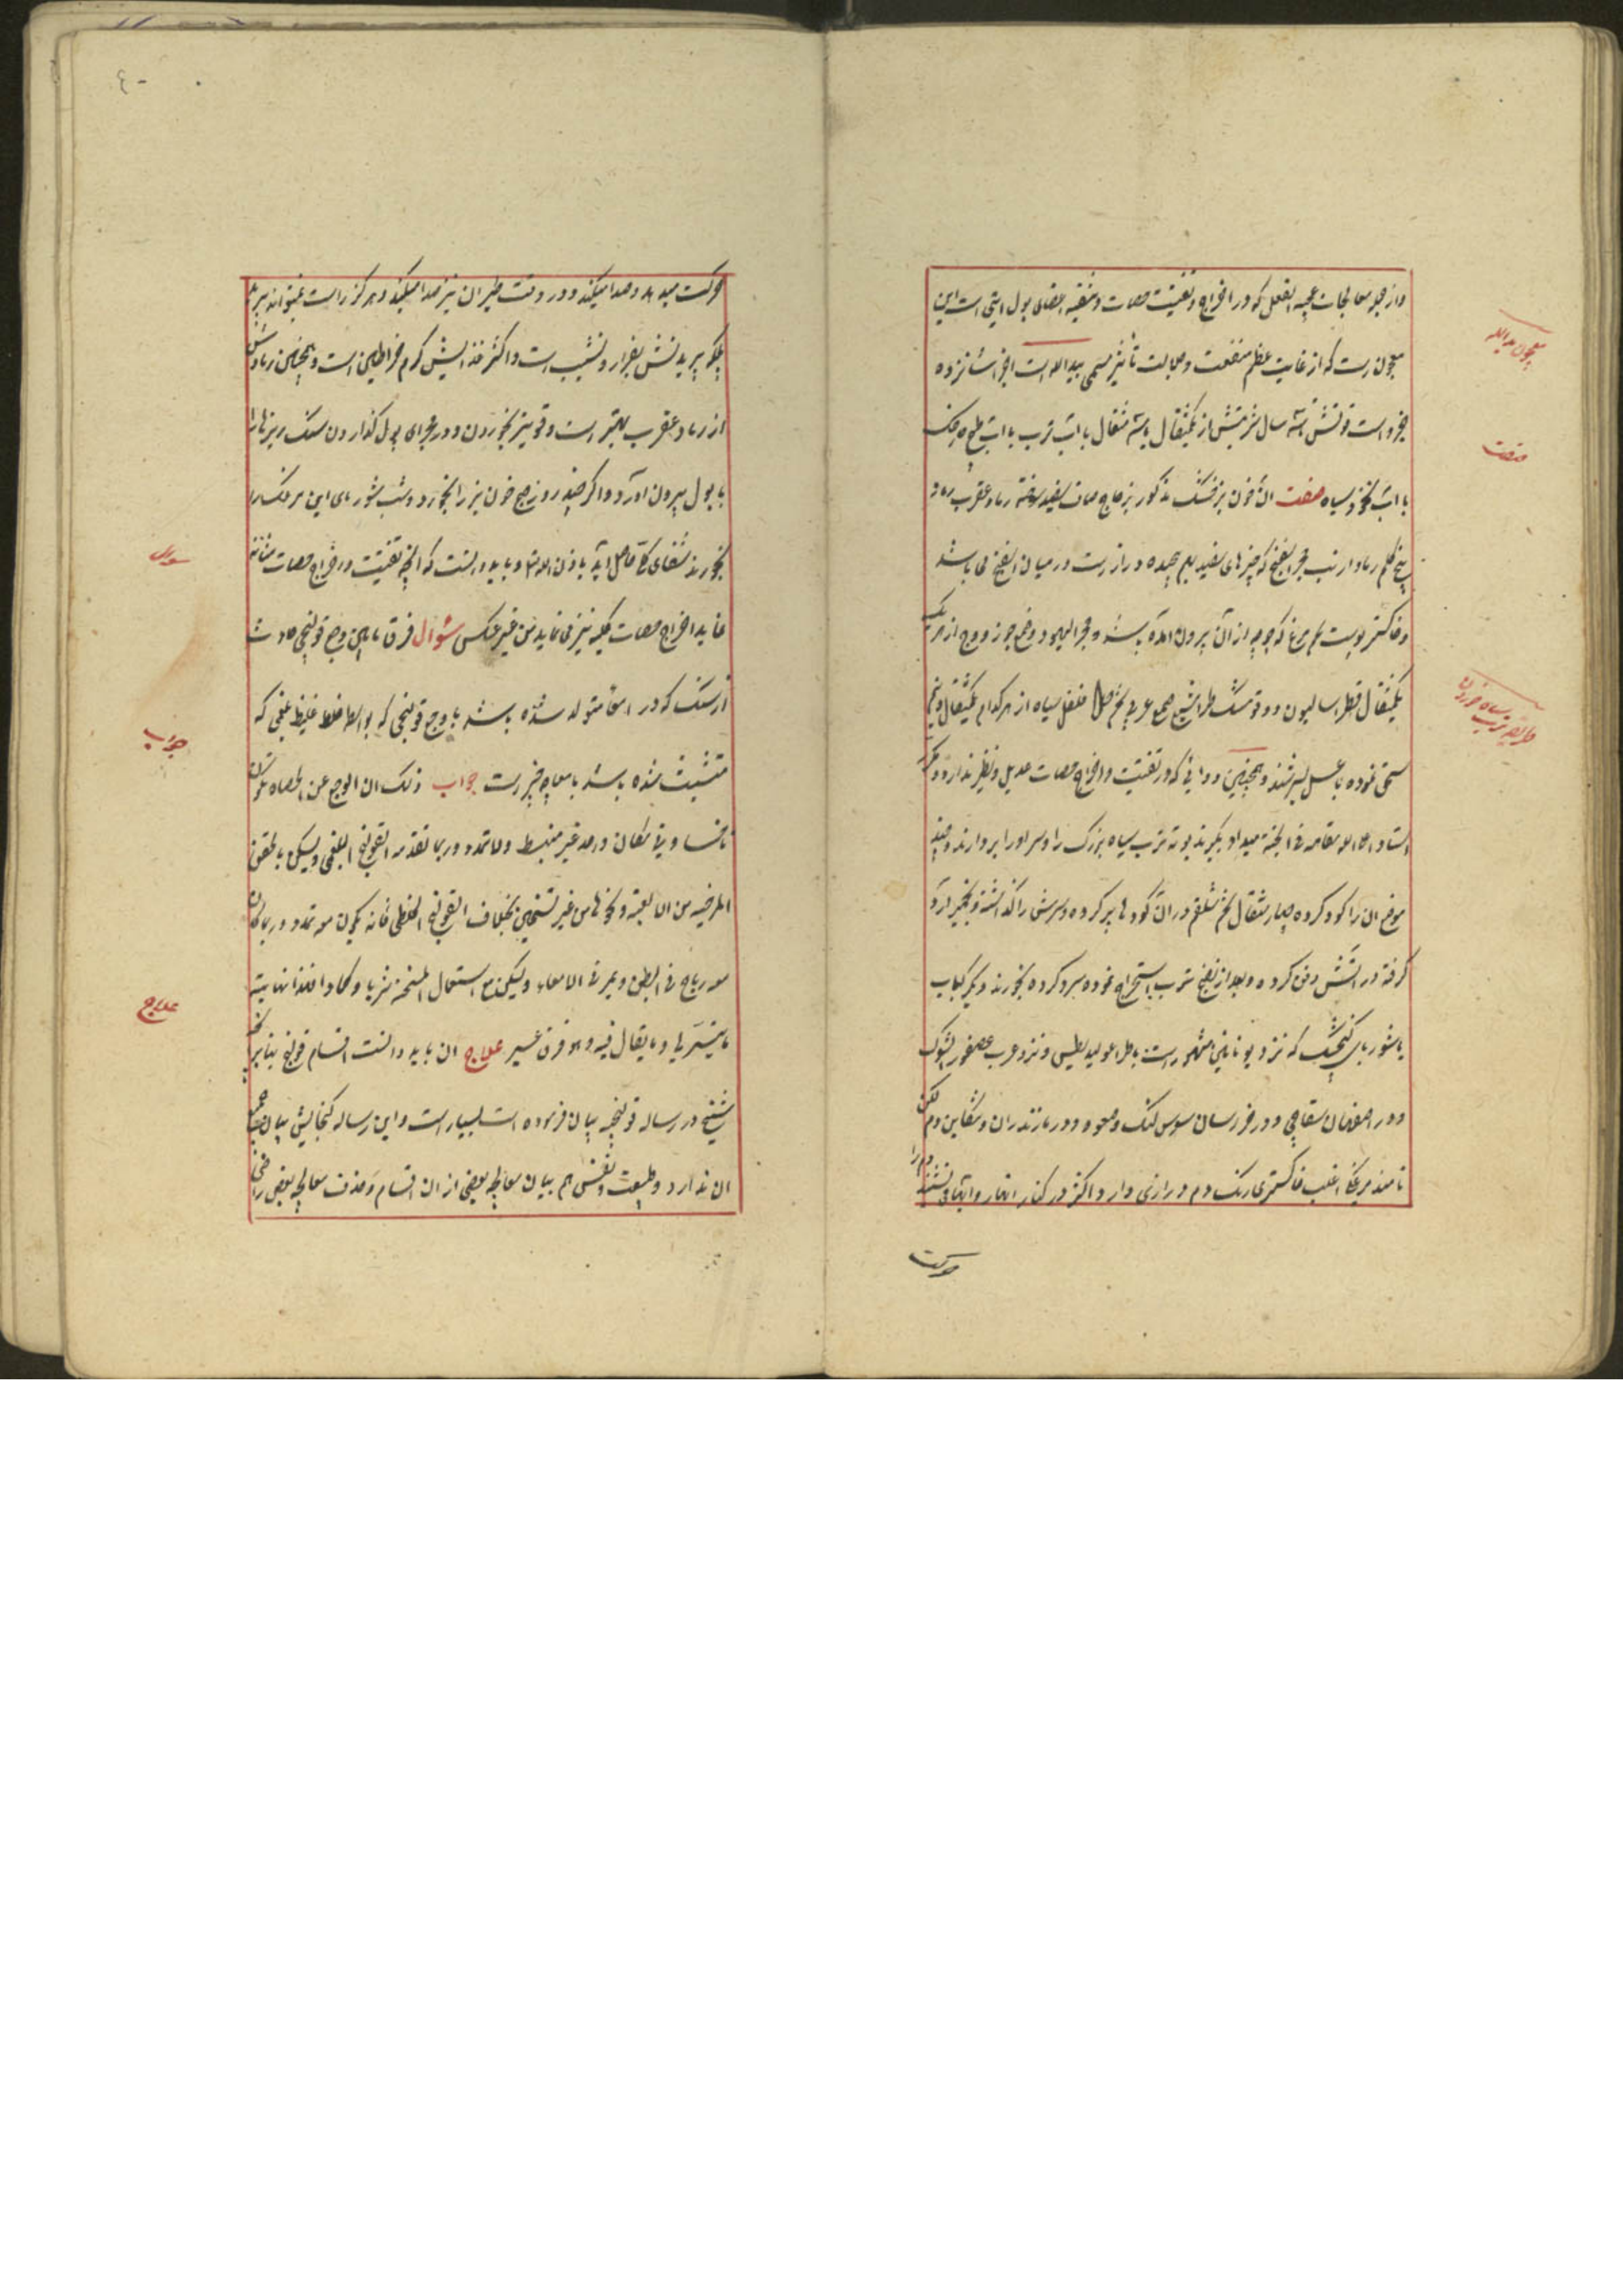 واز جمله معالجات عجیبه الفعل که در اخراج و تفتیت حصات و تنقیه اعضای بول ایتی است این
معجون است که از غایت عظم منفعت و جلالت تاثیر مسمی بیدالله است اجزاش نزده
جزو است قوتش تا سه سال شربتش از یکمثقال تا سه مثقال با آب ترب یا آب
با آب نخود سیاه صفت آن خون بز خشک مذکور زجاج صاف سفید سوخته رماد عقرب رماد
بیخ کلم رماد ارنب حجر اسفنج که چیزهای سفید بهم چیده دراز است در میان اسفنج می باشد
و خاکستر پوست تخم مرغ که جوجه از آن بیرون آمده باشد و حجر الیهود و صمغ جوز و وج از هر یک
یکمثقال فطراسالیون دوقو مشکطرامشیع صمغ عربی تخم فلفل سیاه از هر کدام یکمثقال و نیم
سحق نموده با عسل بسرشند و همچنین دوائی که در تفتیت و اخراج حصات عدیل و نظیر ندارد و
استاد اعلی الله مقامه فی الجنة میداد بگیرند بوته ترب سیاه بزرک را و سر او را بردارند و چند
موضع آن را کود کرده چهار مثقال تخم شلغم در آن کودها پر کرده و سرش را گذاشته و بخمیر آرد
گرفته در آتش دفن کرده و بعد از نضج ترب استخراج نموده سرد کرده بخورند و دیگر کباب
یا شوربای گنجشک که نزد یونانیین مشهور است باطراغولیدیطس و نزد عرب عصفور الشوک
و در اصفهان سقاچی و در خراسان سوس لنک و صعوه و در مازندران دم
نامند مرغکی اغلب خاکستری رنک دم درازی دارد اکثر در کنار انهار و آبها می نشیند دم را
حرکت
معجون یدالله
صفت
طریقه ترب سیاه خوردن
حرکت میدهد و صدا میکند و در وقت طیران نیز صدا میکند و هرگز راست نمیتواند پرید
بلکه پریدنش بفراز و نشیب است و اکثر غذایش کرم خراطین است و همچنین رمادش
از رماد عقرب بهتر است و قویتر بخوردن و در مجرای بول گذاردن سنگ ریزها را
با بول بیرون آورد و اگر چند روز صبح خون بز را بخورد و شب شوربای این مرغک را
بخورند شفای کلی حاصل آید باذن الله تع و باید دانست که آنچه تفتیت و اخراج حصات مثانه
نماید اخراج حصات کلیه نیز می نماید من غیر عکس سؤال فرق مابین وجع قولنجی حادث
از سنک که در امعا متولد شده باشد با وجع قولنجی که بواسطه خلط غلیظ بلغمی که
متشبث شده باشد بامعا چه چیز است جواب ذلک ان الوجع عن الحصاه یکون
ناخسا و یفی مکان واحد غیر منبسط ولا تمدد و ربما تقدمه القولنج البلغمی و یسکن بالحقن
المرخیه من الالعبة و نحوها من غیر تسخین بخلاف القولنج الخلطی فانه یکون معه تمدد و ربما کان
معه ریاح فی البطن و یمر فی الامعاء و یسکن مع استعمال المسخنه شربا و کمادا فهذا نهایة
مایتیسر لنا و ما یقال فیه و هو فرق عسیر علاج آن باید دانست اقسام قولنج بنابر آنچه
شیخ در رساله قولنجیه بیان فرموده است بسیار است و این رساله گنجایش بیان جمیع
آن ندارد و طبیعت و نفس هم ببیان معالجه بعضی از آن اقسام و حذف معالجه بعضی راضی
سؤال
جواب
علاج